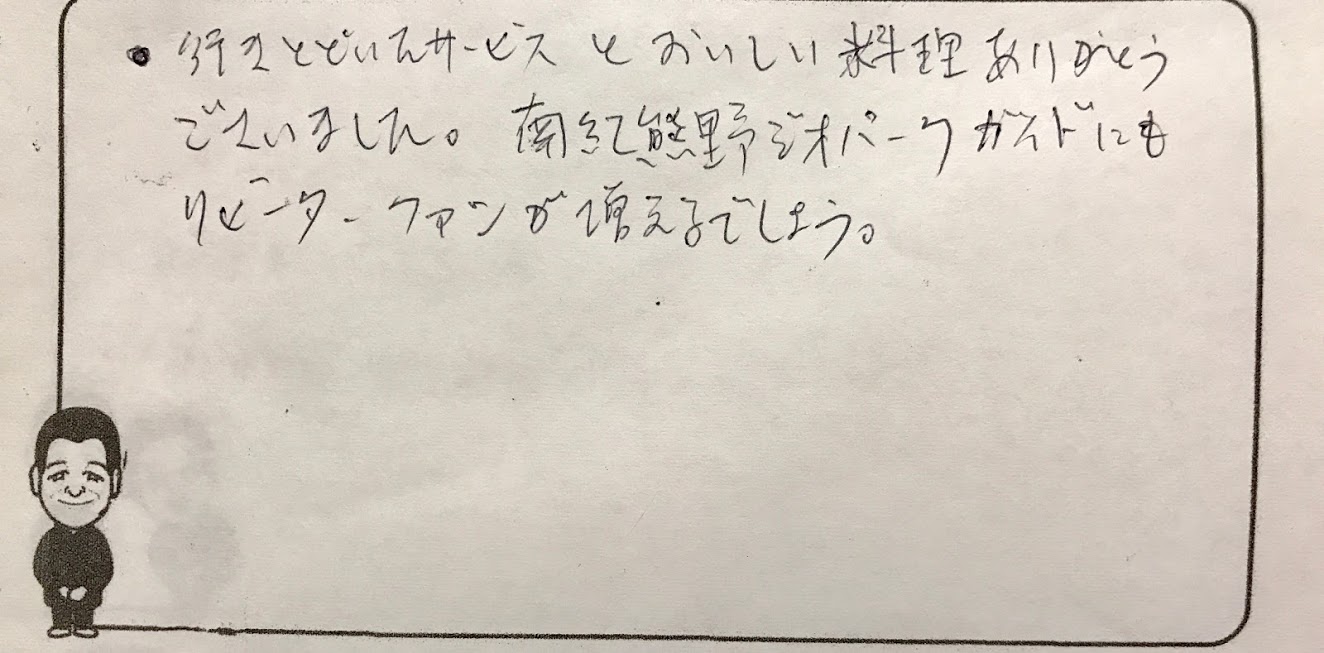 • 行きとどいたサービスとおいしい料理ありがとう
ございました。南紀熊野ジオパークガイドにも
リピーターファンが増えるでしょう。